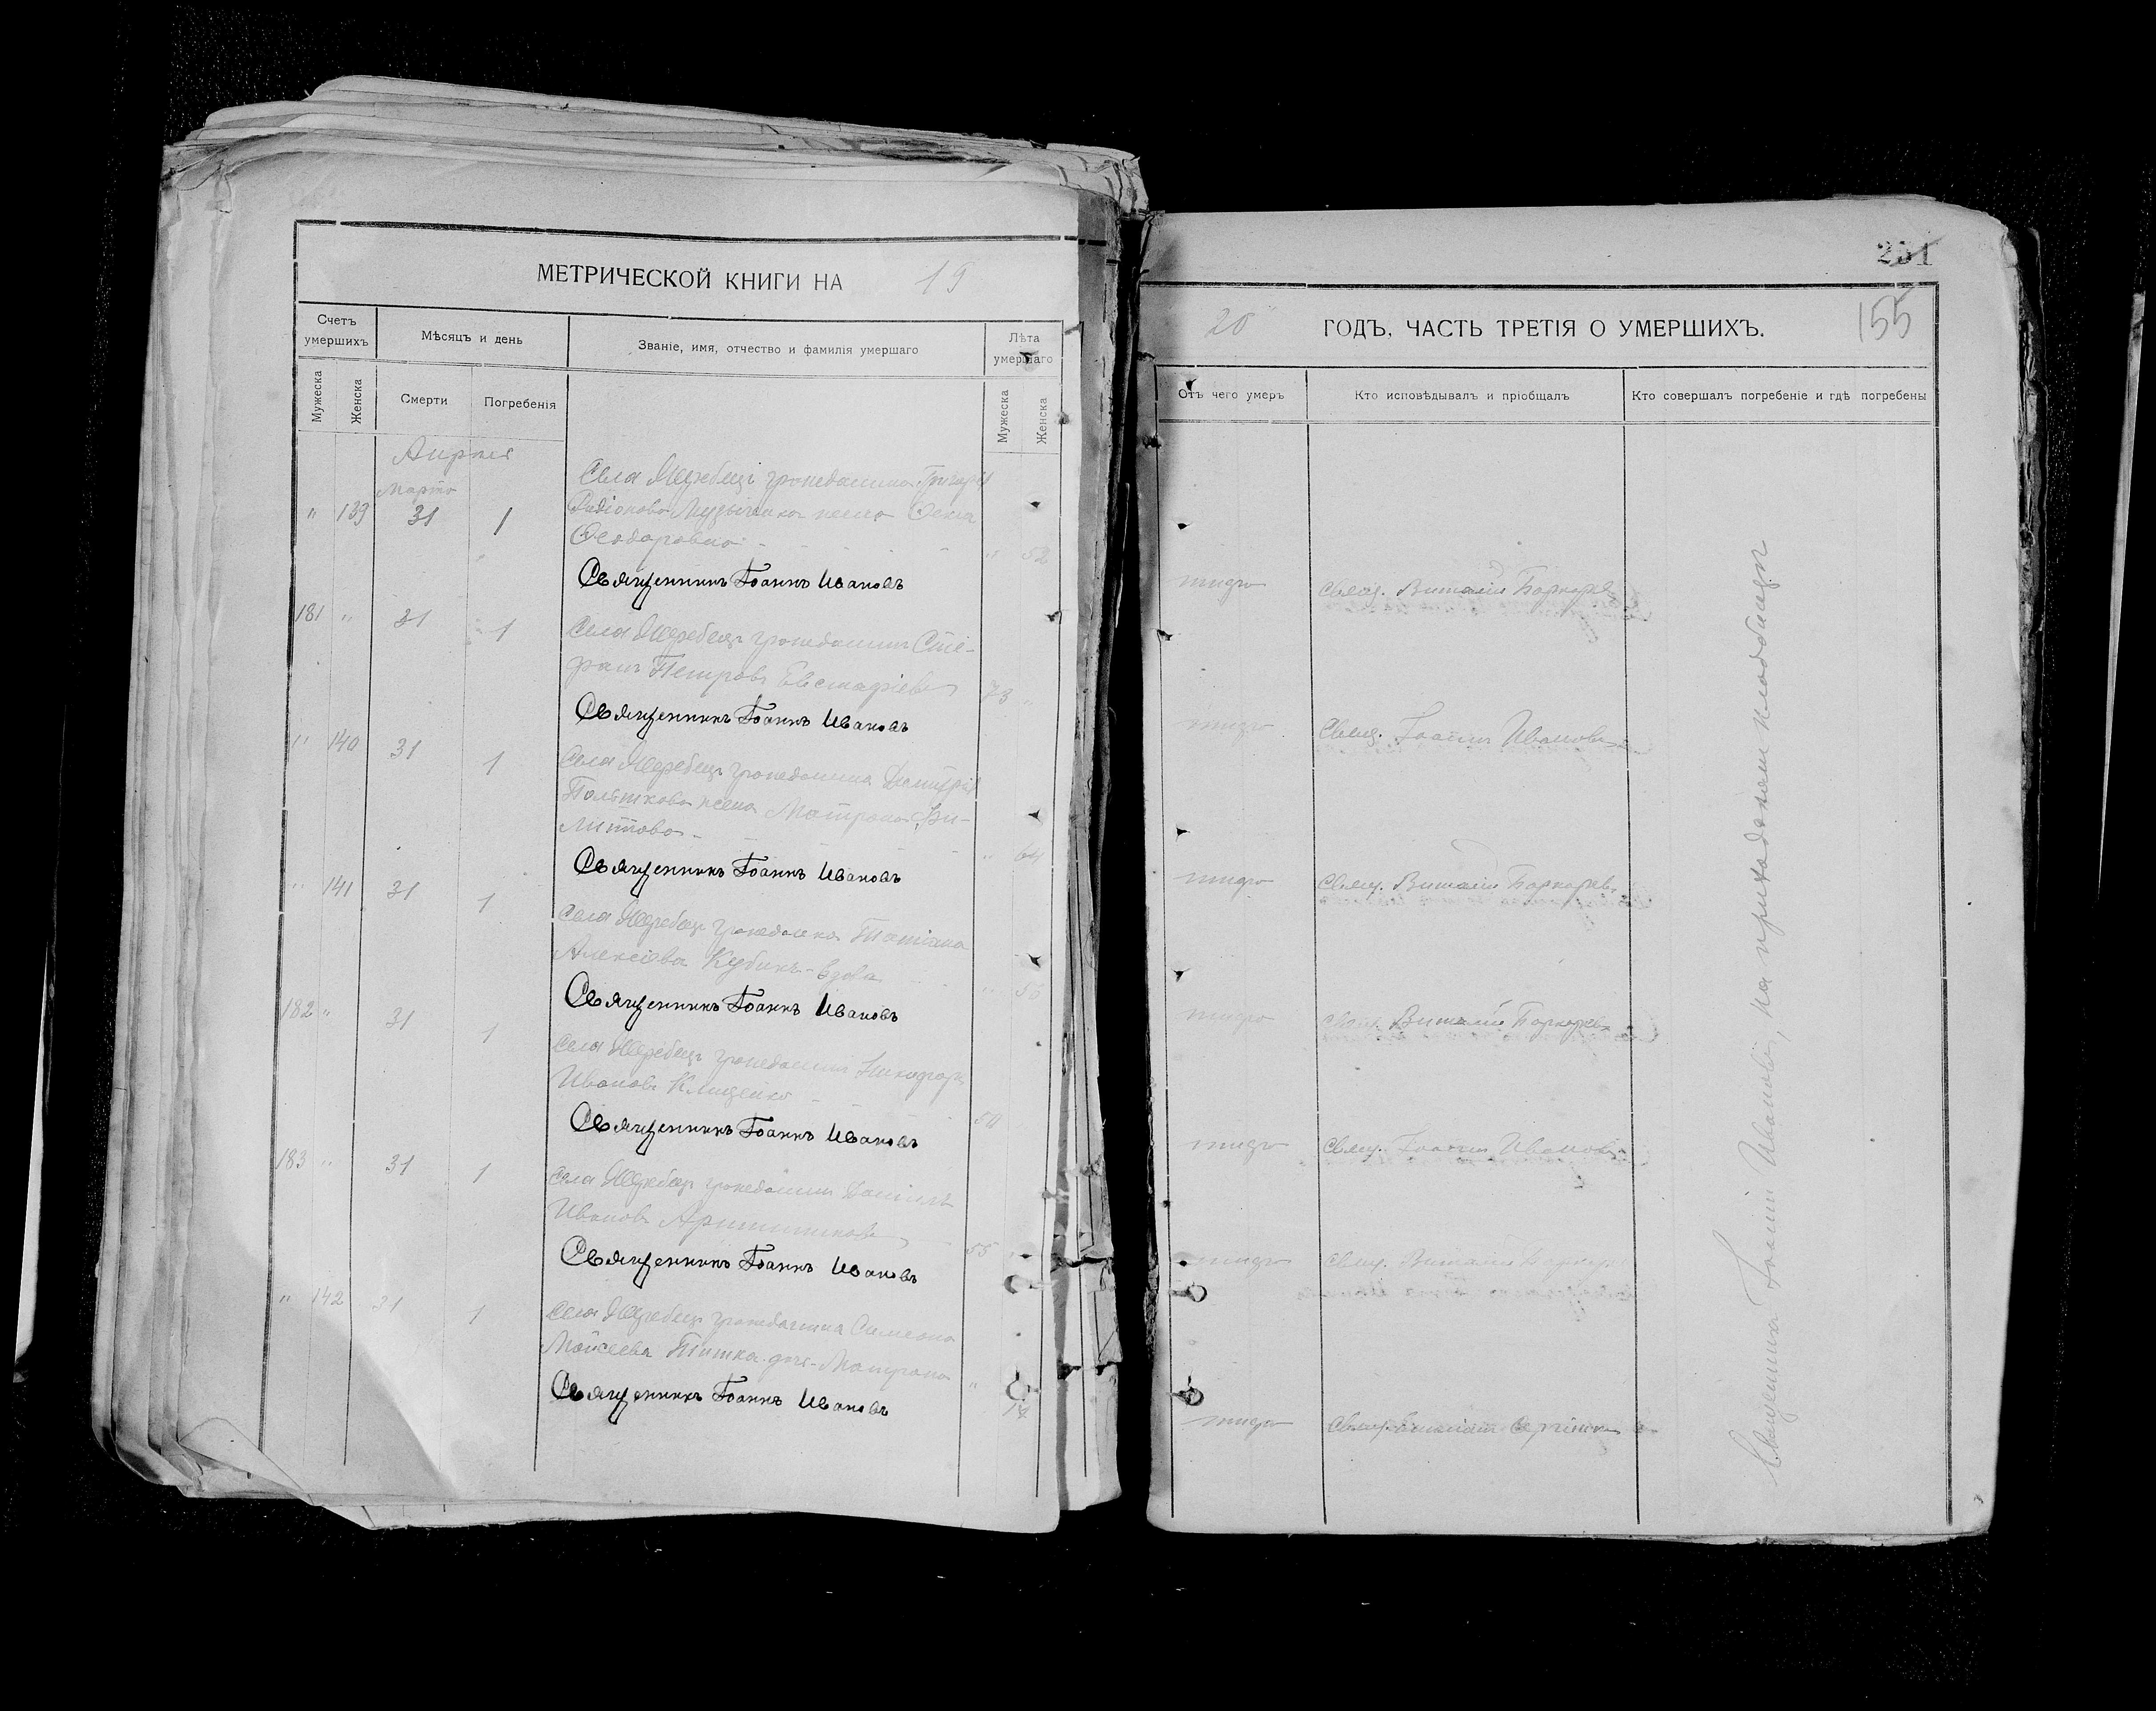 МЕТРИЧЕСКОЙ КНИГИ НА 19
Счетъ умершихъ
Мѣсяцъ и день
Званіе, имя, отчество и фамилія умершаго
Лѣта умершаго
Мужеска
Женска
Смерти
Погребенія
Мужеска
Женска
Апрѣля
Марта
" 139 31 1
Села Жеребецъ гражданина Григорія
Родіонова жена
Феодоровна " 52
Священникъ Іоаннъ Ивановъ
181 " 31 1
Села Жеребецъ гражданинъ Сте-
фанъ Петровъ Евстафіевъ 73
Священникъ Іоаннъ Ивановъ
" 140 31 1
Села Жеребецъ гражданина Димитрія
жена Матрона
" 64
Священникъ Іоаннъ Ивановъ
" 141 31 1
Села Жеребецъ гражданка Татіана
Алексіева Кубикъ - вдова "
Священникъ Іоаннъ Ивановъ
182 " 31 1
Села Жеребецъ гражданинъ Никифоръ
Ивановъ Клищенко 50
Священникъ Іоаннъ Ивановъ
183 " 31 1
Села Жеребецъ гражданинъ Даніилъ
Ивановъ 55
Священникъ Іоаннъ Ивановъ
" 142 31 1
Села Жеребецъ гражданина Симеона
Моисеева дочь Матрона "
Священникъ Іоаннъ Ивановъ
251
155
20 ГОДЪ, ЧАСТЬ ТРЕТІЯ О УМЕРШИХЪ.
Отъ чего умеръ
Кто исповѣдывалъ и пріобщалъ
Кто совершалъ погребеніе и гдѣ погребены
тифъ Свящ. Виталій
тифъ Свящ. Іоаннъ Ивановъ
тифъ Свящ. Виталій
тифъ Свящ. Виталій
тифъ Свящ. Іоаннъ Ивановъ
тифъ Свящ. Виталій
тифъ Свящ.
Священникъ Іоаннъ Ивановъ, на приходскомъ кладбищѣ